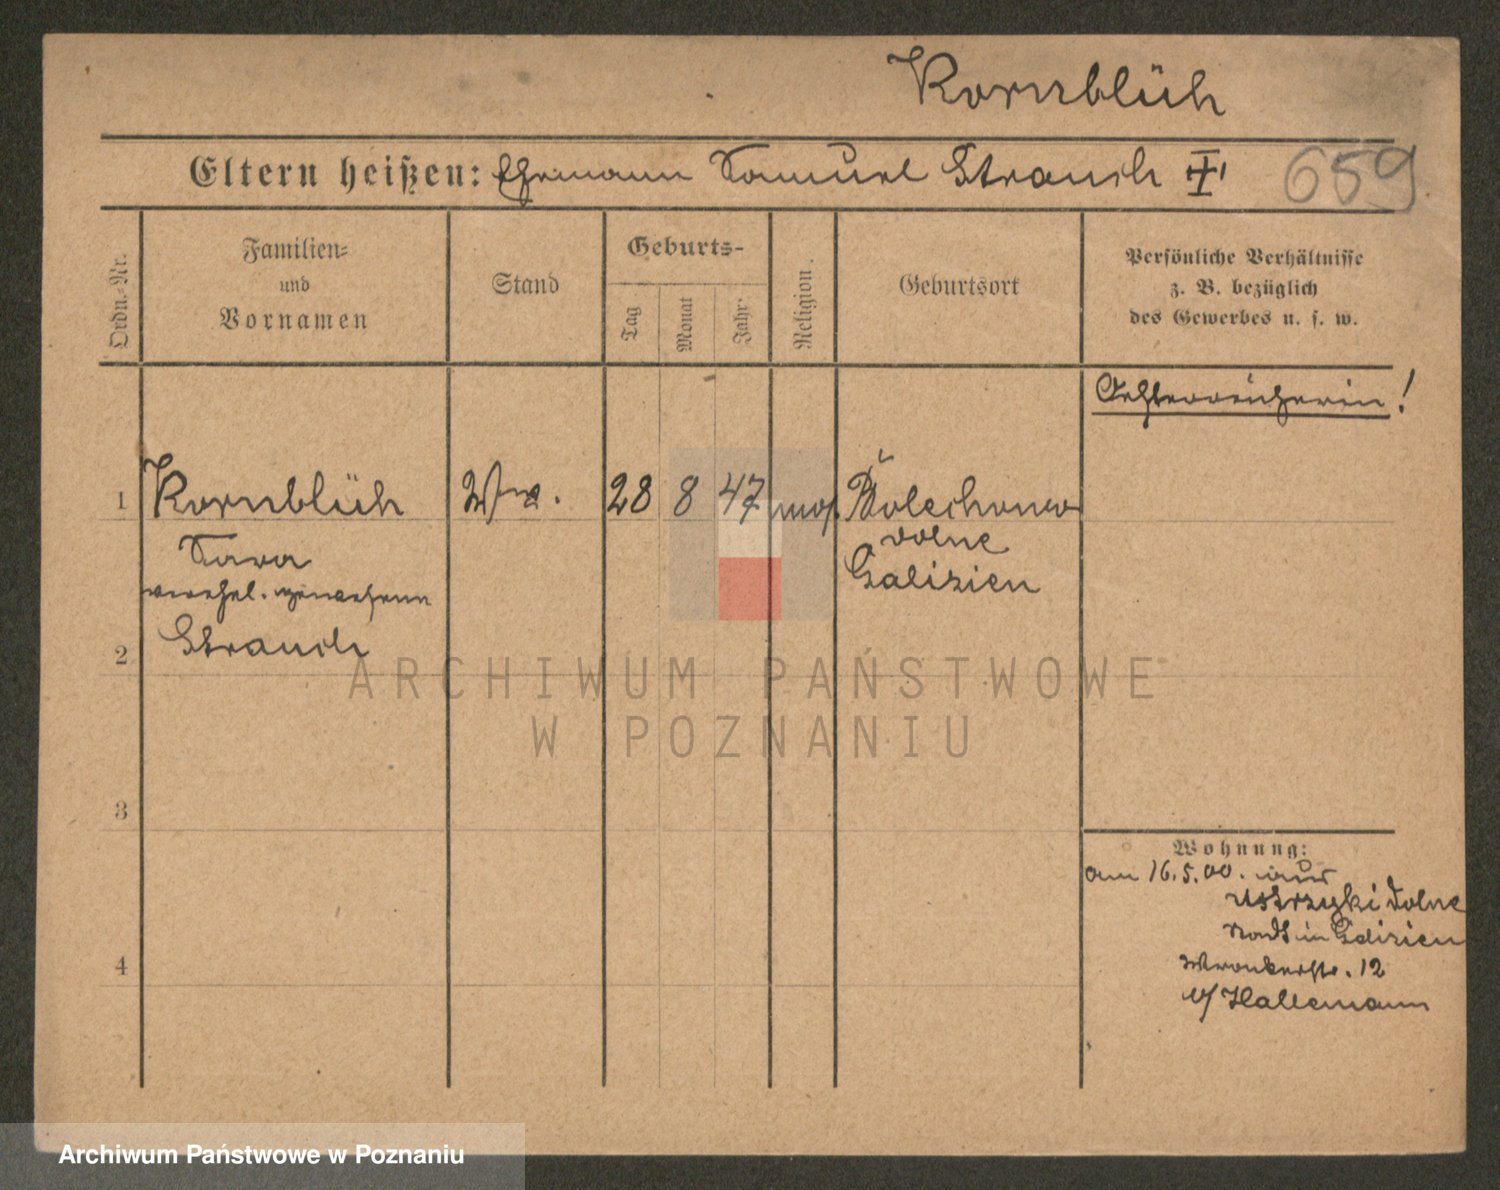 Kornblüh
Eltern heißen: Ehemann Samuel Strauch
659
Ordn.-Nr.
Familien-
und
Vornamen
Stand
Geburts-
Tag
Monat
Jahr
Religion
Geburtsort
Persönliche Verhältnisse
z. B. bezüglich
des Gewerbes u. s. w.
Oesterreicherin!
1 Kornblüh Ww. 28 8 47 mos.
dolne
Sara
Galizien
verehel. gewesene
2 Strauch
3
4
Wohnung:
am 16.5.00. aus
Ustrzyki dolne
Stadt in Galizien
Wronkerstr. 12
b/ Hallemann
ARCHIWUM PAŃSTWOWE
W POZNANIU
Archiwum Państwowe w Poznaniu